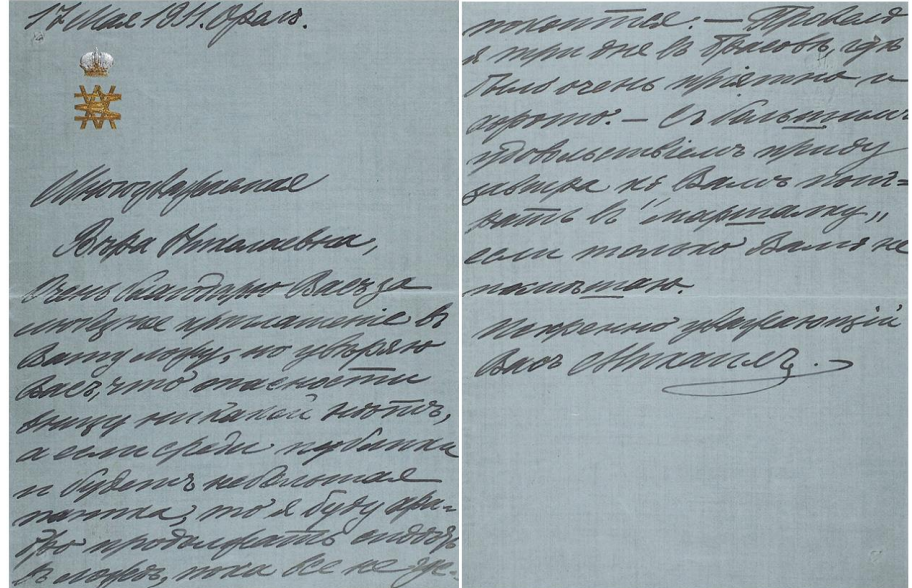 17 Мая 1911. Орелъ.
Многоуважаемая
Вѣра Николаевна,
Очень благодарю Васъ за
любезное приглашеніе въ
Вашу ложу, но увѣряю
Васъ, что опасности
вижу никакой нѣтъ,
а если среди публики
и будетъ небольшая
паника, то я буду
продолжать сидѣть
въ ложѣ, пока все не
покоится. — Провелъ
я три дня въ Брасовѣ, гдѣ
было очень пріятно и
хорошо. — Съ большимъ
удовольствіемъ приду
завтра къ Вамъ поиг-
рать въ "
если только Вамъ не
помѣшаю.
Искренно уважающій
Васъ Михаилъ.